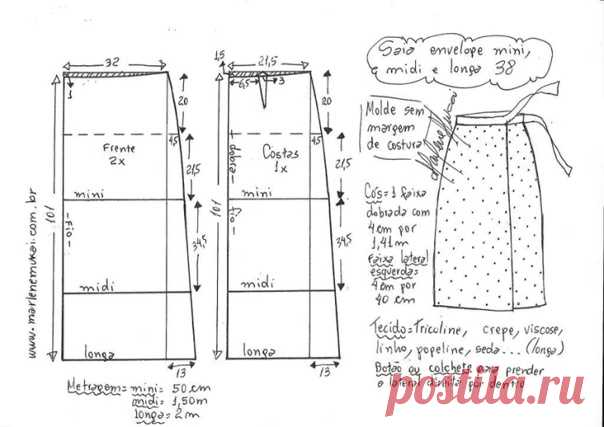 Saia envelope mini,
midi e longa 38
32
1
20
4,5
21,5
34,5
101
Frente
2x
mini
fio
midi
longa
13
www.marlenemukai.com.br
1,5
21,5
6,5
3
20
4,5
21,5
34,5
101
Costas
1x
dobra
fio
mini
midi
longa
13
Molde sem
margem
de costura
Marlene Mukai
Cós=1 faixa
dobrada com
4cm por
1,41m
faixa lateral
esquerda=
4cm por
40 cm
Tecido=Tricoline, crepe, viscose,
linho, popeline, seda... (longa)
Botão ou colchete para prender
a lateral direita por dentro
Metragem= mini= 50 cm
midi= 1,50m
longa= 2m
postila.ru